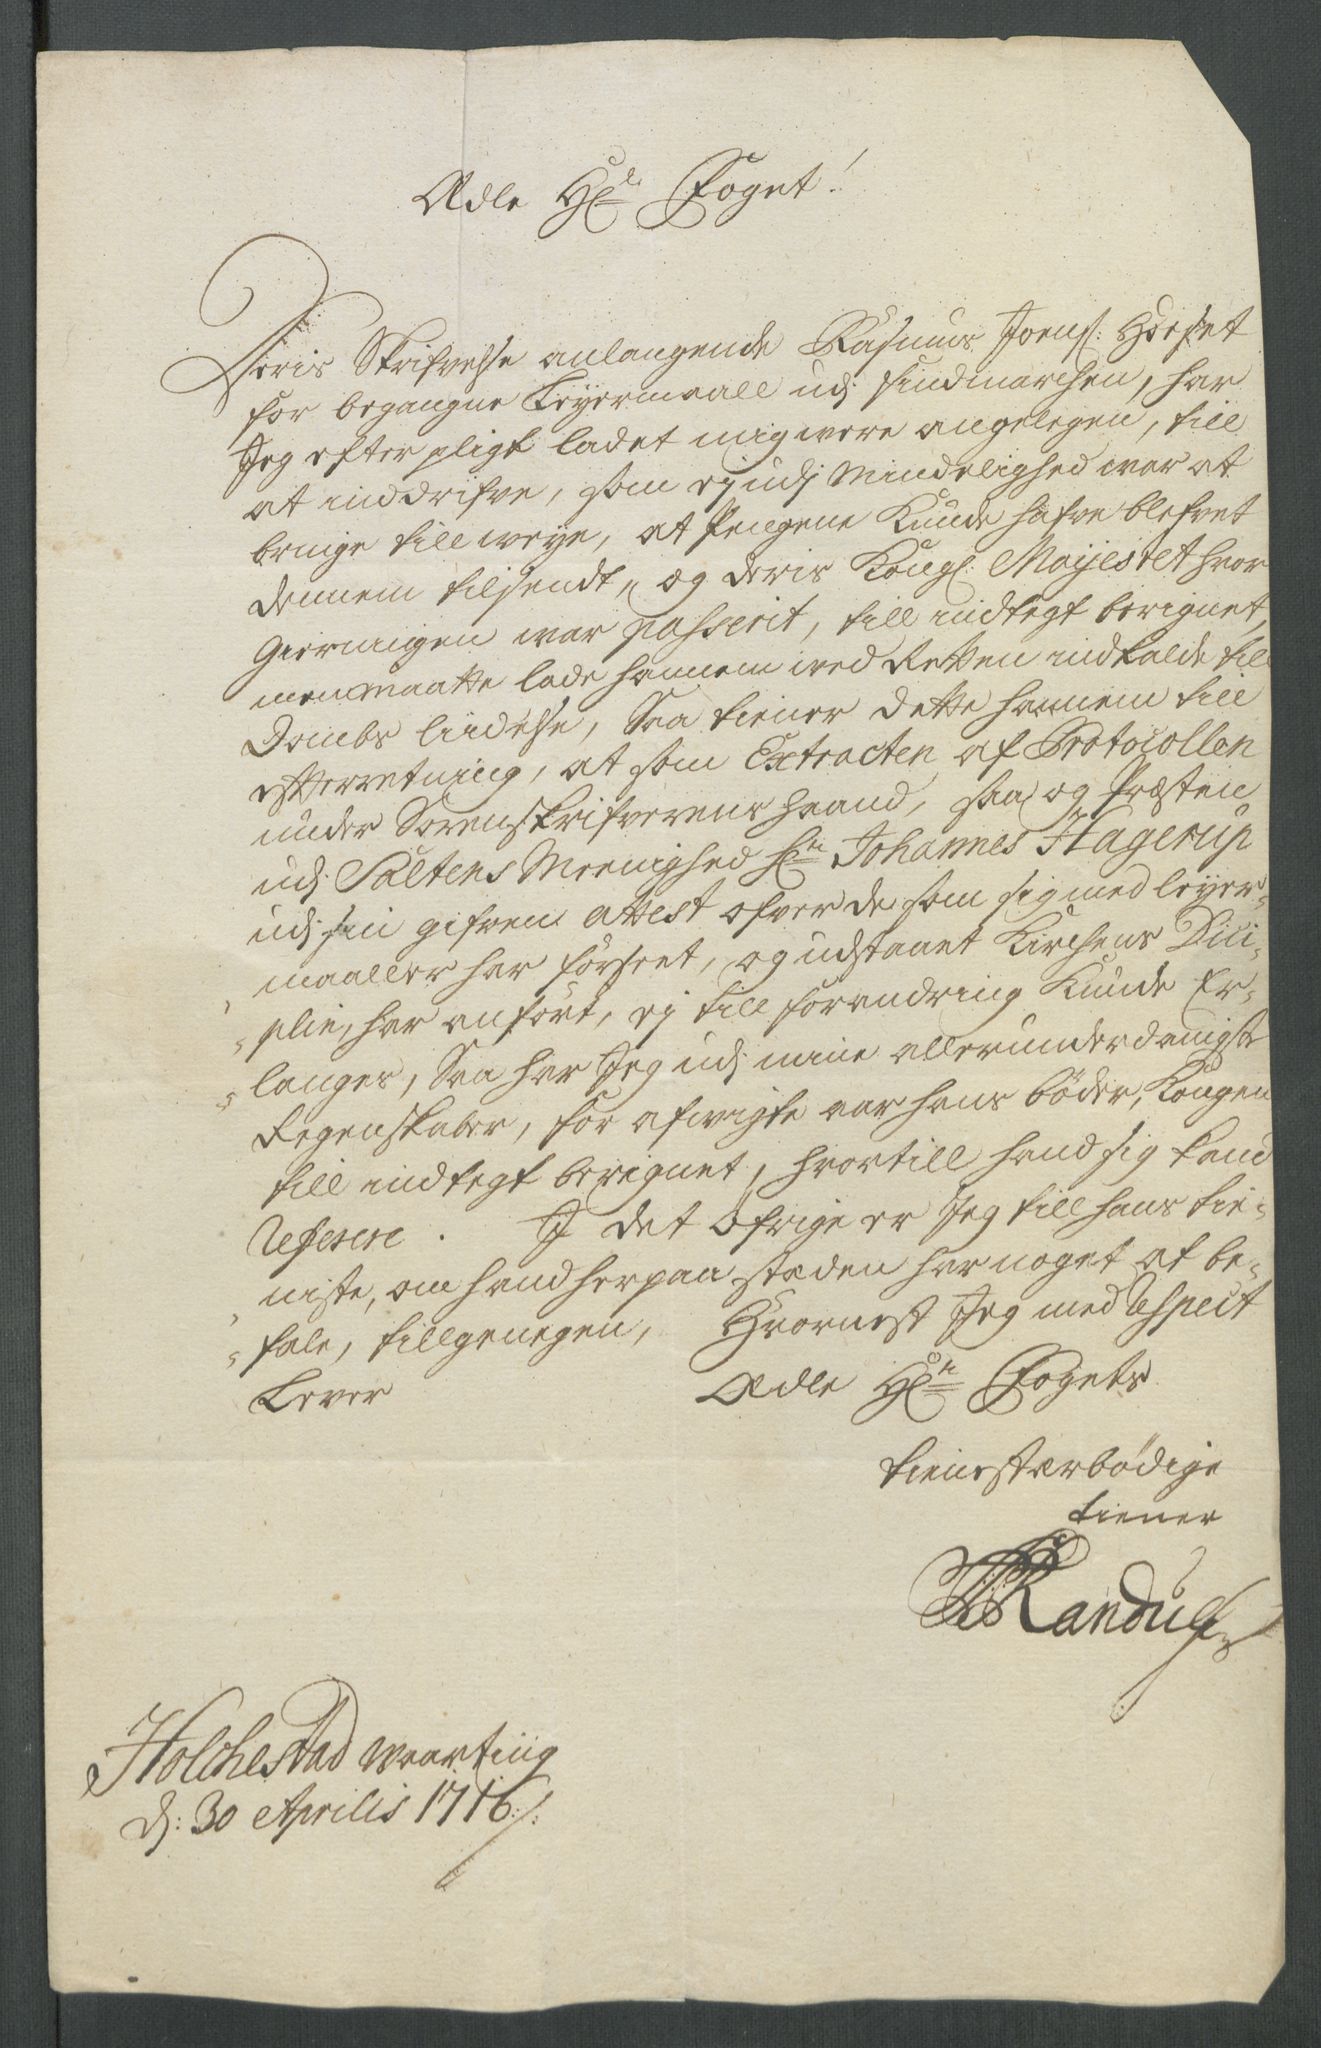 Ædle Hr Foget!
Deris Skrifvelse anlangende Rasmus Joens: Horset
for begangne Leyermaall udj findmarchen, har
Jeg efter pligt ladet mig were angelegen, till
at inddrifve, som ej udj Mindelighed war at
bringe till weye, at Pengene Kunde hafve blefvet
dennem tilsendt, og deris Kongl: Mayjestet hvor
Gierningen war passerit, till indtegt berignet,
men maatte lade hannem wed Retten indkalde till
Dombs liidelse, Saa tiener dette hannem till
efterretning, at som Extracten af Protocollen
under Sorenskrifverens haand, saa og Præsten
udj Saltens Meenighed Hr Johannes Hagerup
udj sin gifven attest ofver de som sig med leyer-
maaller har forseet, og udstaaet Kirchens Dici-
-plin, har anført, ej till forandring Kunde Er-
-langes, Saa har Jeg udj mine allerunderdanigste
Regenskaber, for afvigte aar hans bøder, Kongen
till indtegt berignet, hvortill hand sig kand
Referere. I det Øfrige er Jeg till hans tie-
niste, om hand her paa stæden har noget at be-
-fale, tillgenegen, Hvornest Jeg med Respect
Lever Ædle Hr Fogets
tienstærbødige
tiener
Randulf
Holchestad Waarting
d: 30 Aprilis 1716